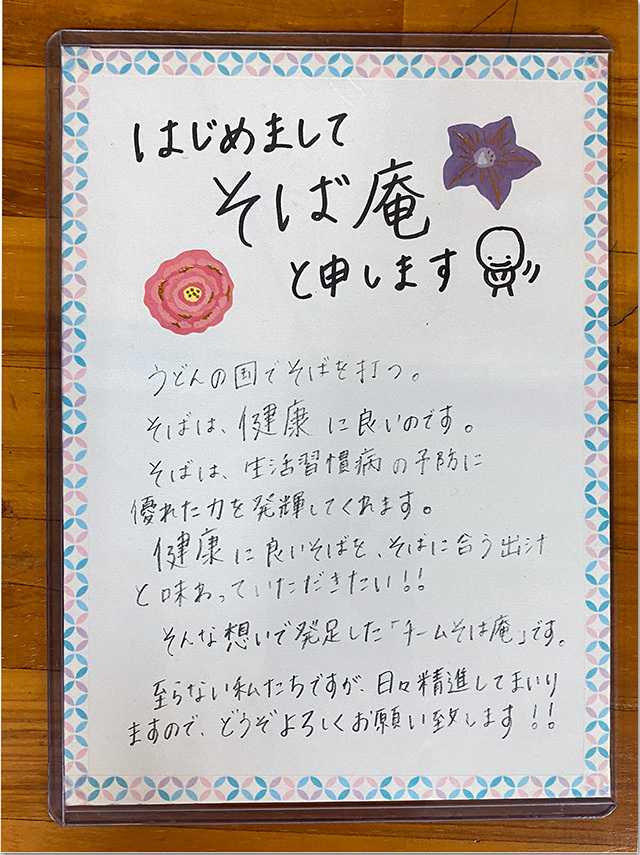 はじめまして
そば庵
と申します
うどんの国でそばを打つ。
そばは、健康に良いのです。
そばは、生活習慣病の予防に
優れた力を発輝してくれます。
健康に良いそばを、そばに合う出汁
と味わっていただきたい!!
そんな想いで発足した「チームそば庵」です。
至らない私たちですが、日々精進してまいり
ますので、どうぞよろしくお願い致します!!